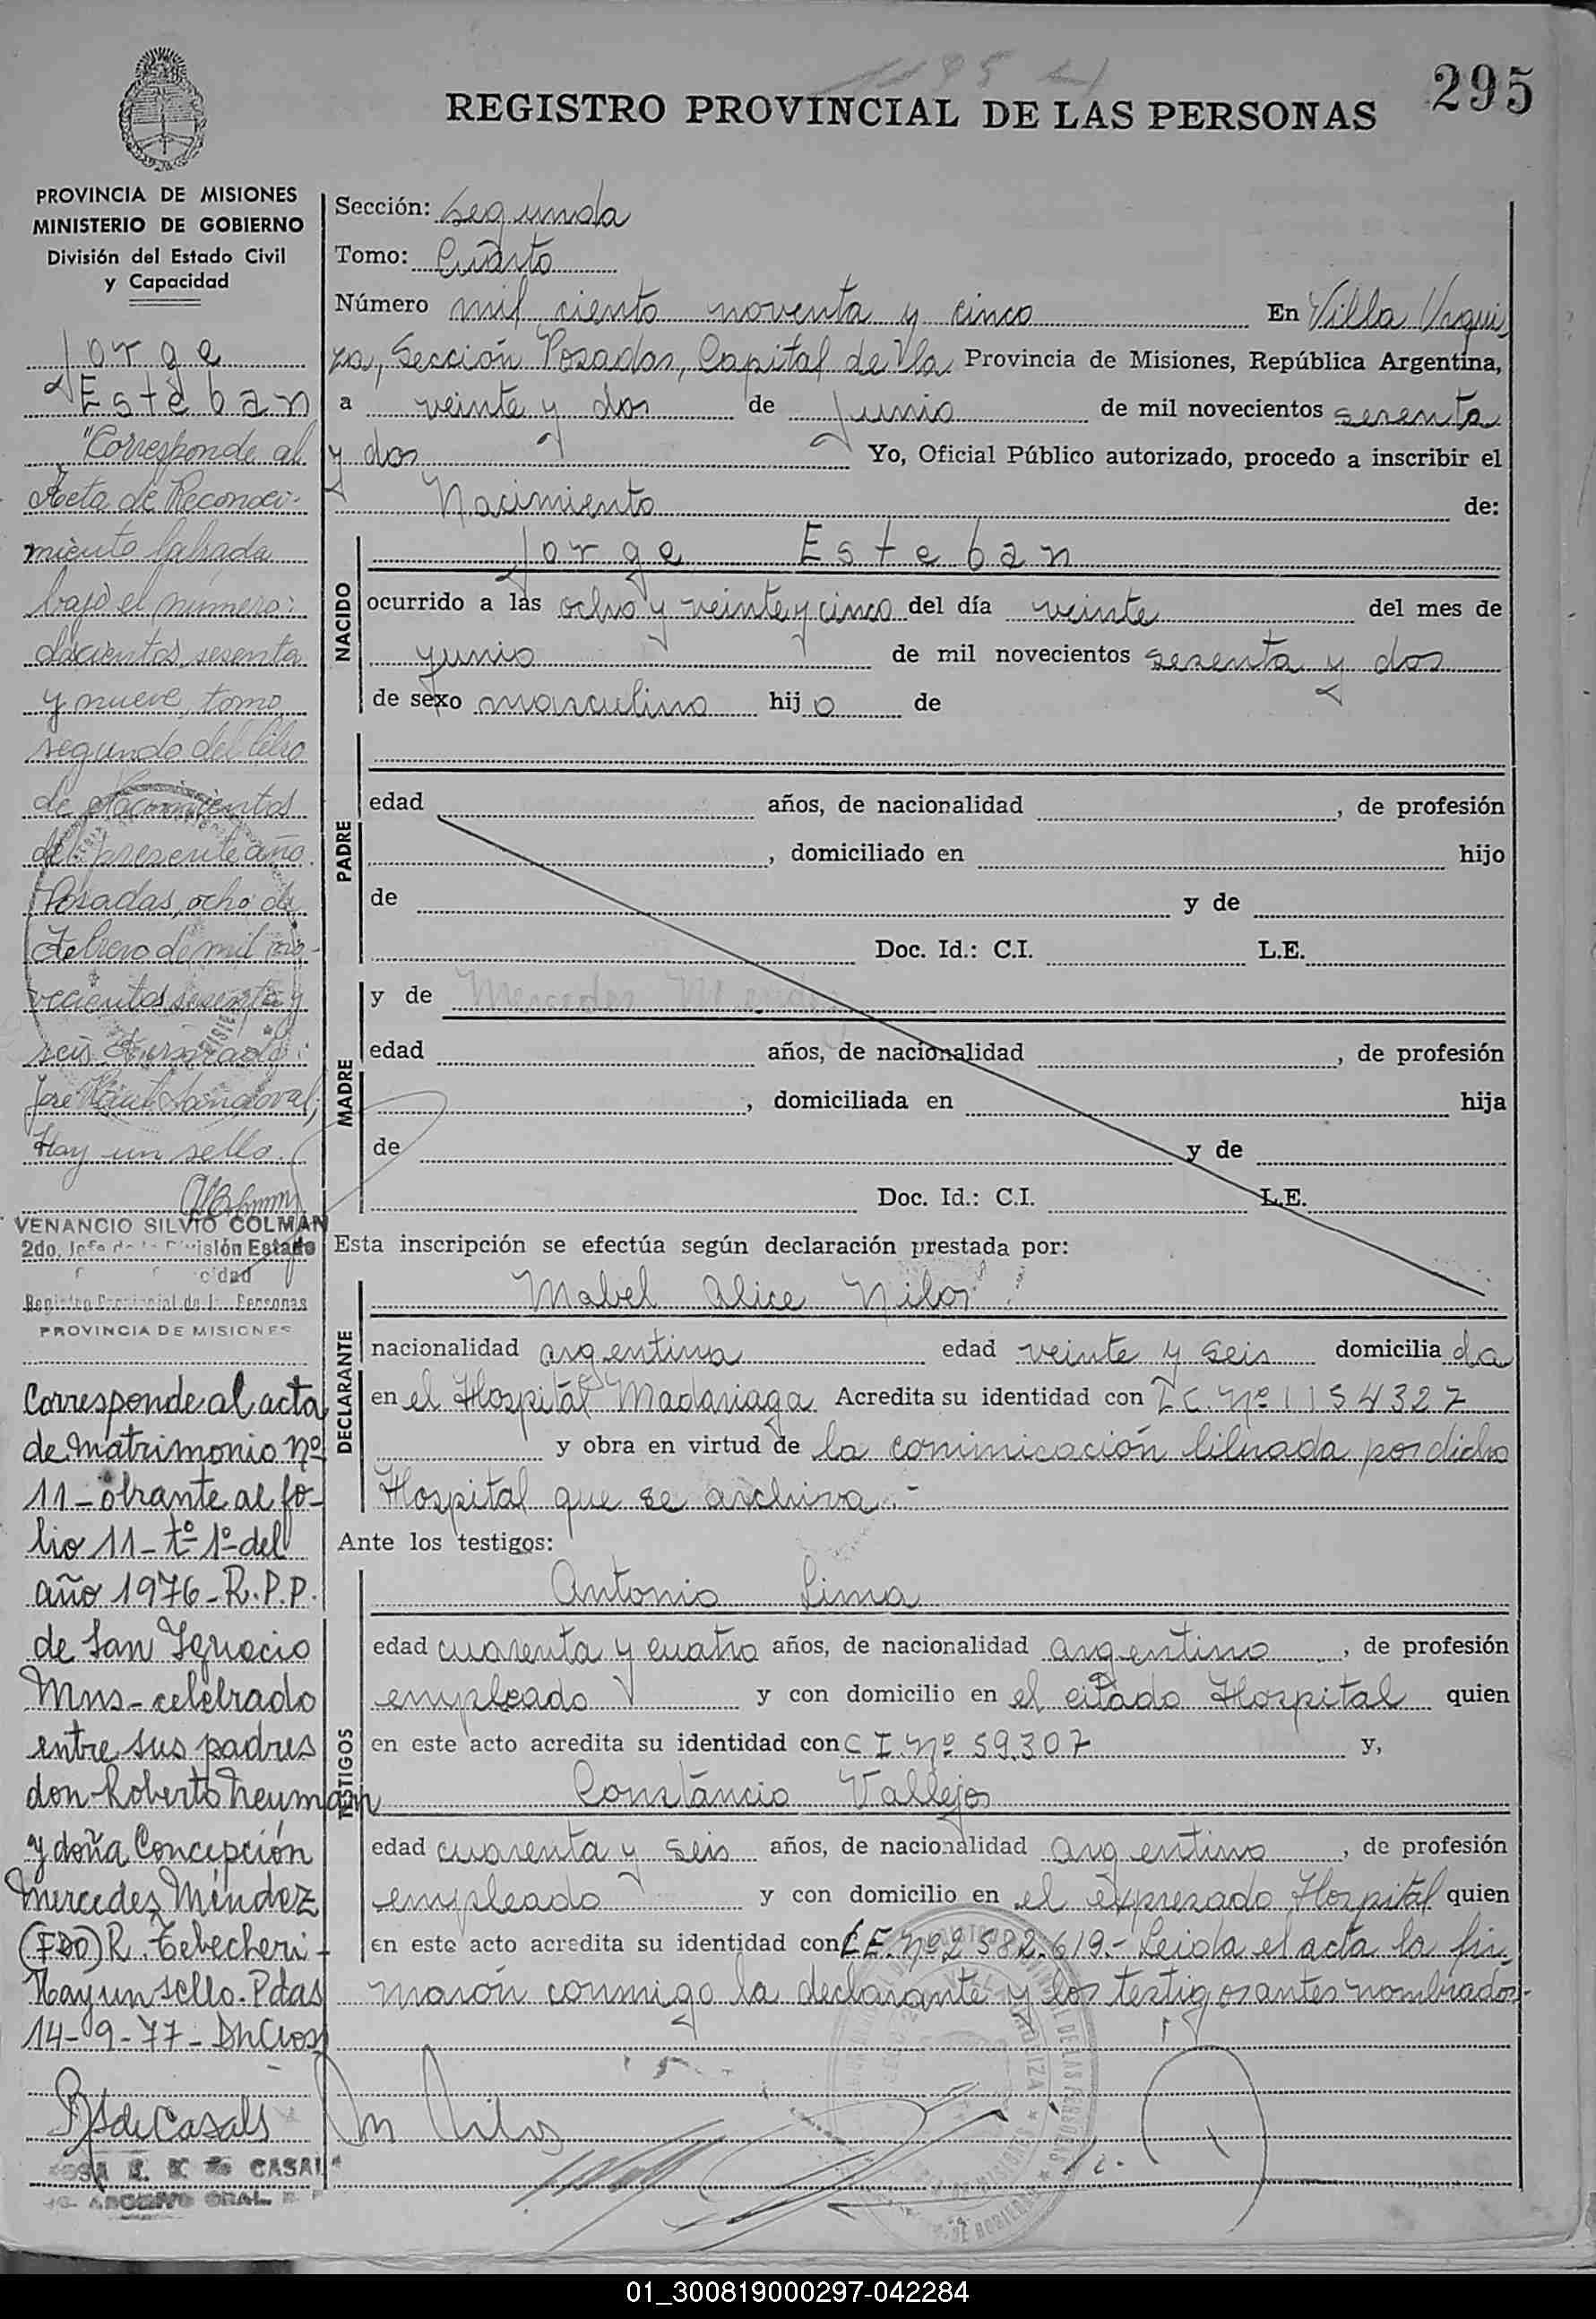 295
REGISTRO PROVINCIAL DE LAS PERSONAS
PROVINCIA DE MISIONES
MINISTERIO DE GOBIERNO
División del Estado Civil
y Capacidad
Jorge
Esteban
"Corresponde al
Acta de Reconoci-
miento labrada
bajo el número:
doscientos sesenta
y nueve, tomo
segundo del libro
de Nacimientos
del presente año.
Posadas, ocho de
Febrero de mil no-
vecientos sesenta y
seis. Firmado:
José Sandoval,
Hay un sello.
VENANCIO SILVIO COLMAN
2do. Jefe de la División Estado
Registro Provincial de las Personas
PROVINCIA DE MISIONES
Corresponde al acta
de Matrimonio Nº
11 - obrante al fo-
lio 11 - tº 1º del
año 1976 - R.P.P.
de San Ignacio
Mns - celebrado
entre sus padres
don Roberto Neumann
y doña Concepción
Mercedes Méndez
(FDO) R. Tebecheri -
Hay un sello. Pdas
14-9-77 -
Sección: Segunda
Tomo: Cuarto
Número mil ciento noventa y cinco En Villa Urqui
za, Sección Posadas, Capital de la Provincia de Misiones, República Argentina,
a veinte y dos de Junio de mil novecientos sesenta
y dos Yo, Oficial Público autorizado, procedo a inscribir el
Nacimiento de:
NACIDO
Jorge Esteban
ocurrido a las ocho y veinte y cinco del día veinte del mes de
junio de mil novecientos sesenta y dos
de sexo masculino hijo de
PADRE
edad años, de nacionalidad , de profesión
, domiciliado en hijo
de y de
Doc. Id.: C.I. L.E.
MADRE
y de Mercedes Mendez
edad años, de nacionalidad , de profesión
, domiciliada en hija
de y de
Doc. Id.: C.I. L.E.
Esta inscripción se efectúa según declaración prestada por:
DECLARANTE
Mabel Alice Nilos
nacionalidad argentina edad veinte y seis domiciliada
en el Hospital Madariaga Acredita su identidad con L C. Nº 1154327
y obra en virtud de la cominicación librada por dicho
Hospital que se archiva.-
Ante los testigos:
TESTIGOS
Antonio Lima
edad cuarenta y cuatro años, de nacionalidad argentino , de profesión
empleado y con domicilio en el citado Hospital quien
en este acto acredita su identidad con C I. Nº 59.307 y,
Constancio Vallejos
edad cuarenta y seis años, de nacionalidad argentino , de profesión
empleado y con domicilio en el expresado Hospital quien
en este acto acredita su identidad con L E. Nº 2 582.619.- Leida el acta la fir
maron conmigo la declarante y los testigos antes nombrados.-
M Nilos
CASALS
01_300819000297-042284